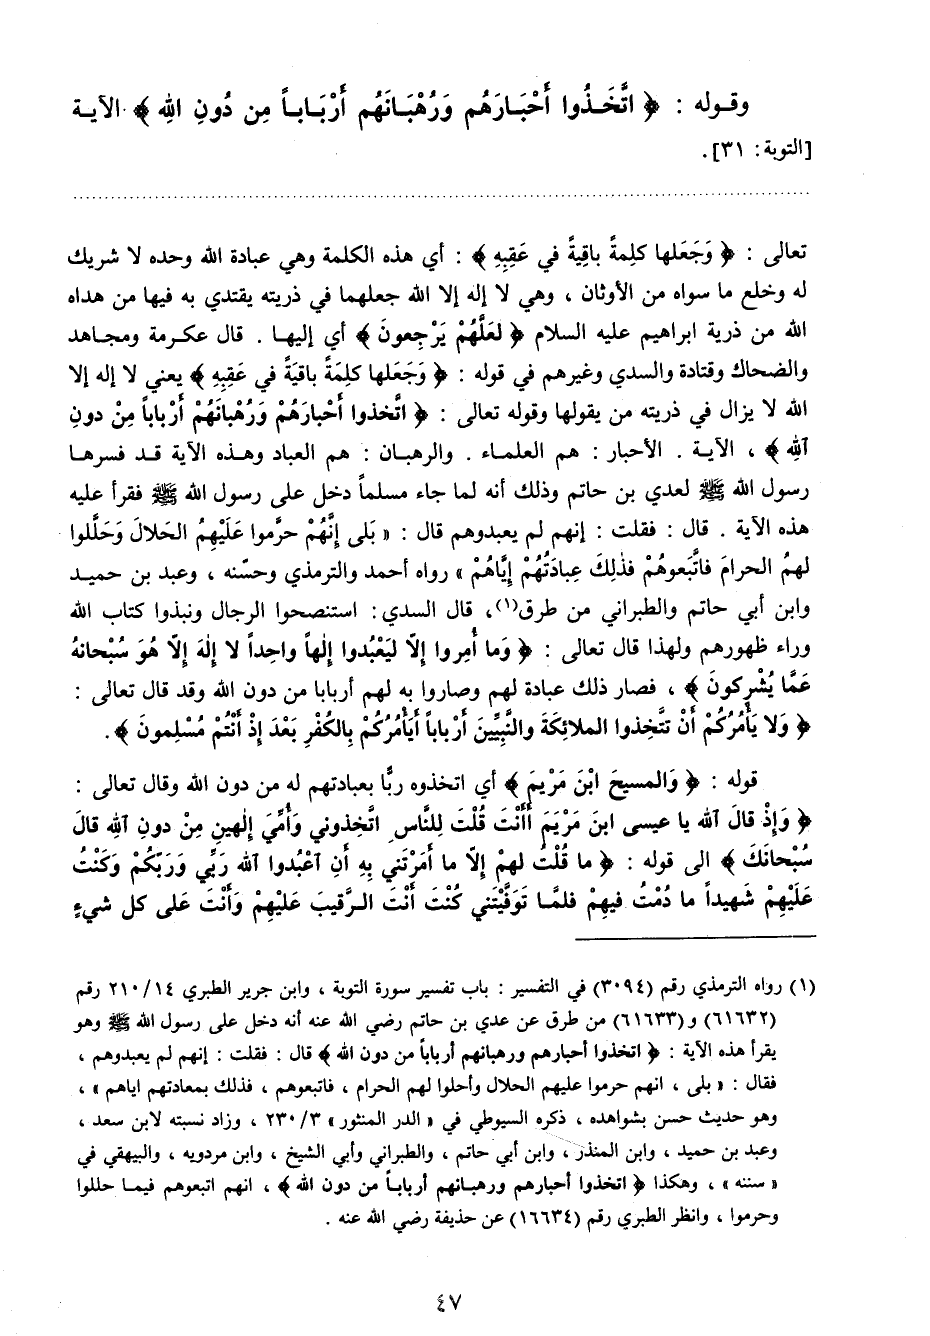 وقـوله : ﴿ اتَّخَـذُوا أَحْبَـارَهُم وَرُهْبَـانَهُم أَرْبَـابـاً مِن دُونِ اللهِ ﴾ الآيـة
[التوبة: ٣١].
تعالى : ﴿ وَجَعَلها كلِمةً باقِيةً في عَقِبِهِ ﴾ : أي هذه الكلمة وهي عبادة الله وحده لا شريك
له وخلع ما سواه من الأوثان ، وهي لا إله إلا الله جعلهما في ذريته يقتدي به فيها من هداه
الله من ذرية ابراهيم عليه السلام ﴿ لعَلَّهُمْ يَرْجعونَ ﴾ أي إليهـا . قال عكـرمة ومجـاهد
والضحاك وقتادة والسدي وغيرهم في قوله : ﴿ وَجَعَلها كلِمَةً باقيَةً في عَقِبِهِ ﴾ يعني لا إله إلا
الله لا يزال في ذريته من يقولها وقوله تعالى : ﴿ اتَّخذوا أَحْبارَهُمْ وَرُهْبانَهُمْ أَرْباباً مِنْ دونِ
آللهِ ﴾ ، الآيـة . الأحبار : هم العلمـاء . والرهبان : هم العباد وهـذه الآية قـد فسرهـا
رسول الله ﷺ لعدي بن حاتم وذلك أنه لما جاء مسلماً دخل على رسول الله ﷺ فقرأ عليه
هذه الآية . قال : فقلت : إنهم لم يعبدوهم قال : « بَلى إنَّهُمْ حرَّموا عَلَيْهِمُ الحَلالَ وَحَلَّلوا
لهمُ الحرامَ فاتَّبعوهُمْ فذٰلِكَ عِبادَتُهُمْ إيَّاهُمْ » رواه أحمد والترمذي وحسّنه ، وعبد بن حميـد
وابن أبي حاتم والطبراني من طرق(١)، قال السدي: استنصحوا الرجال ونبذوا كتاب الله
وراء ظهورهم ولهذا قال تعالى : ﴿ وَما أُمِروا إلّا ليَعْبُدوا إلٰهاً واحِداً لا إلٰهَ إلّا هُوَ سُبْحانهُ
عَمَّا يُشْرِكونَ ﴾ ، فصار ذلك عبادة لهم وصاروا به لهم أربابا من دون الله وقد قال تعالى :
﴿ وَلا يَأْمُرُكُمْ أَنْ تتَّخِذوا الملائِكَةَ والنَّبِيِّينَ أَرْباباً أَيَأْمُرُكُمْ بِالكُفْرِ بَعْدَ إذْ أَنْتُمْ مُسْلِمونَ ﴾.
قوله : ﴿ وَالمسيحَ ابْنَ مَرْيمَ ﴾ أي اتخذوه ربًّا بعبادتهم له من دون الله وقال تعالى :
﴿ وَإذْ قالَ آلله يا عيسى ابنَ مَرْيَمَ أَأَنْتَ قُلْتَ لِلنَّاسِ اتَّخِذوني وَأُمِّيَ إلٰهينِ مِنْ دونِ آللهِ قالَ
سُبْحانَكَ ﴾ الى قوله : ﴿ ما قُلْتُ لهمْ إلّا ما أَمَرْتَني بِهِ أَنِ آعْبُدوا آلله رَبِّي وَرَبَّكُمْ وَكُنْتُ
عَلَيْهِمْ شَهيداً ما دُمْتُ فيهِمْ فلمَّـا تَوَفَّيْتَني كُنْتَ أَنْتَ الـرَّقيبَ عَلَيْهِمْ وَأَنْتَ عَلى كل شيءٍ
(١) رواه الترمذي رقم (٣٠٩٤) في التفسير : باب تفسير سورة التوبة ، وابن جرير الطبري ٢١٠/١٤ رقم
(٦١٦٣٢) و(٦١٦٣٣) من طرق عن عدي بن حاتم رضي الله عنه أنه دخل على رسول الله ﷺ وهو
يقرأ هذه الآية : ﴿ اتخذوا أحبارهم ورهبانهم أرباباً من دون الله ﴾ قال : فقلت : إنهم لم يعبدوهم ،
فقال : « بلى ، انهم حرموا عليهم الحلال وأحلوا لهم الحرام ، فاتبعوهم ، فذلك بمعادتهم اياهم » ،
وهو حديث حسن بشواهده ، ذكره السيوطي في « الدر المنثور » ٢٣٠/٣ ، وزاد نسبته لابن سعد ،
وعبد بن حميد ، وابن المنذر ، وابن أبي حاتم ، والطبراني وأبي الشيخ ، وابن مردويه ، والبيهقي في
« سننه » ، وهكذا ﴿ اتخذوا أحبارهم ورهبـانهم أربابـاً من دون الله ﴾ ، انهم اتبعوهم فيمـا حللوا
وحرموا ، وانظر الطبري رقم (١٦٦٣٤) عن حذيفة رضي الله عنه .
٤٧